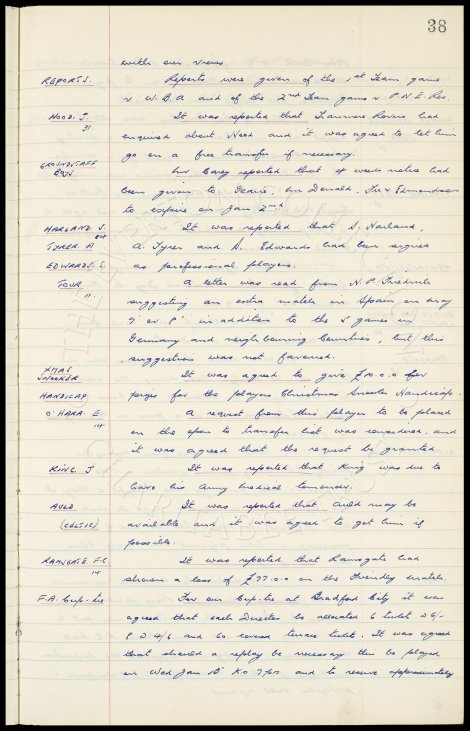 38
with our views
REPORTS. Reports were given of the 1st Team game
v W.B.A and of the 2nd Team game v P.N.E. Res.
HOOD. J. It was reported that Tranmere Rovers had
31 enquired about Hood and it was agreed to let him
go on a free transfer if necessary.
GROUNDSTAFF BOYS Mr Carey reported that 4 weeks notice had
been given to Isaac, Mc Donald, & Edmondson
to expire on Jan 2nd
HARLAND. S. It was reported that S. Harland,
TYRER. A A. Tyrer and S. Edwards had been signed
EDWARDS. S. as professional players.
TOUR A letter was read from N. P.
11. suggesting an extra match in Spain on May
7 or 8 in addition to the 5 games in
Germany and neighbouring Countries, but this
suggestion was not favoured.
XMAS It was agreed to give £10.0.0 for
SNOOKER
HANDICAP prizes for the players Christmas Snooker Handicap.
O'HARA. E. A request from this player to be placed
14 on the open to transfer list was considered and
it was agreed that the request be granted.
RING. J It was reported that Ring was due to
have his Army medical tomorrow.
AULD It was reported that Auld may be
(CELTIC) available and it was agreed to get him if
possible.
RAMSGATE. F.C. It was reported that Ramsgate had
14 shown a loss of £77.0.0 on the Friendly match.
F.A. Cup-tie For our Cup-tie at Bradford City it was
agreed that each Director be allocated 6 tickets 2 6/-
2 4/6 and 60 covered terrace tickets. It was agreed
that should a replay be necessary this be played
on Wed Jan K.O and to reserve approximately